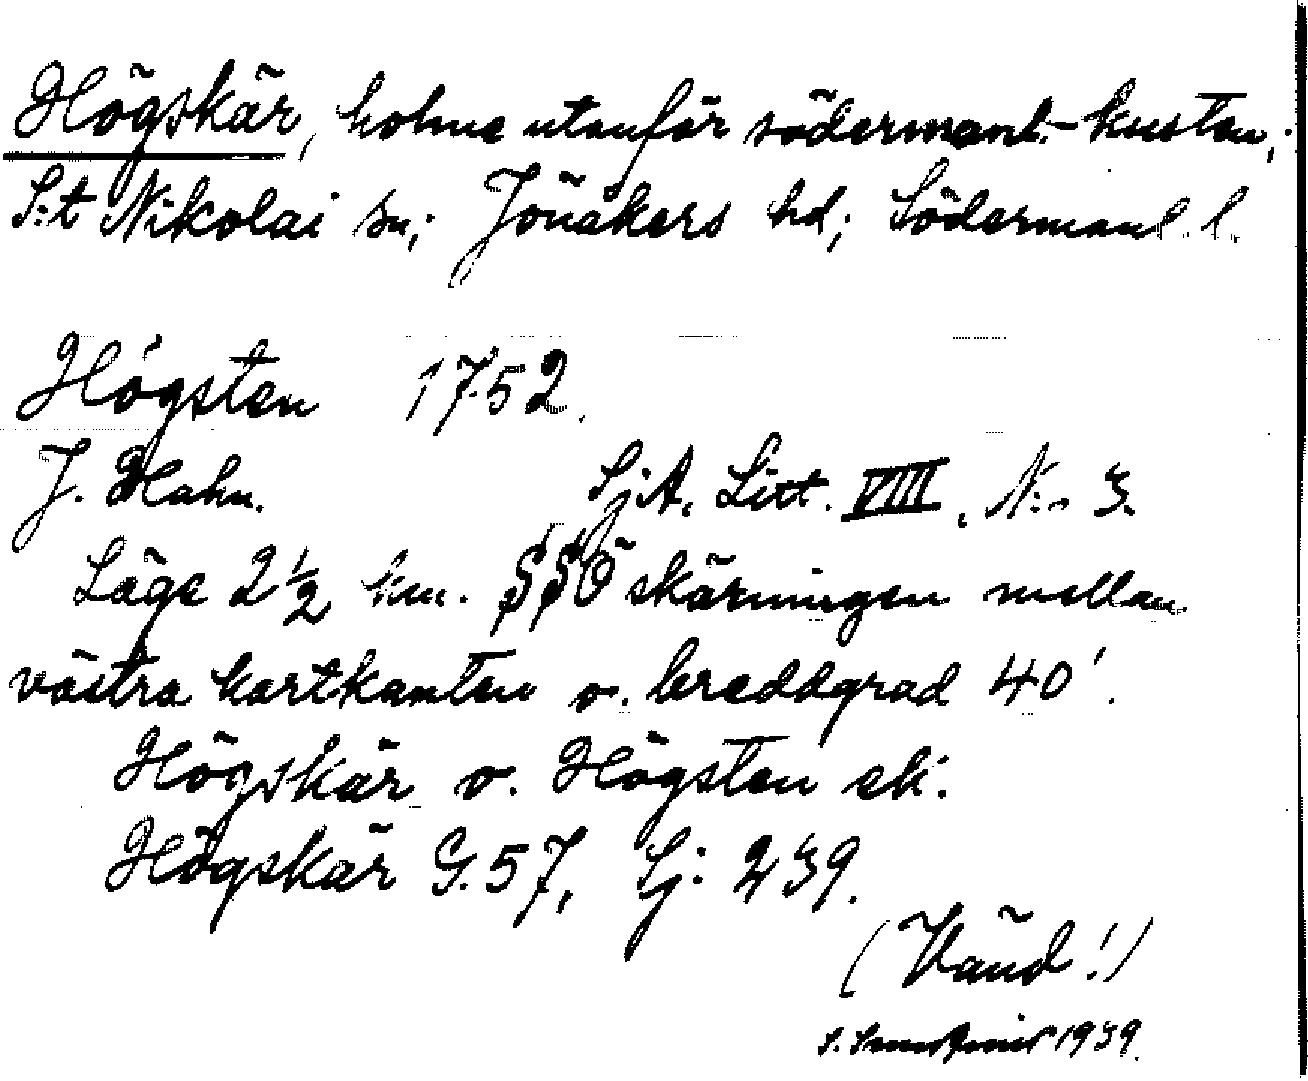 Högskär, holme utanför södermanl.-kusten;
S:t Nikolai sn; Jönåkers hd; Södermanl. l.
Högsten 1752.
J. Hahn. SjA. Litt. VIII, N:o 3.
Läge 2½ km. SSÖ skärningen mellan
västra kartkanten o. breddgrad 40'.
Högskär o. Högsten ek.
Högskär G. 57, Sj: 239.
(Vänd!)
S. 1939.